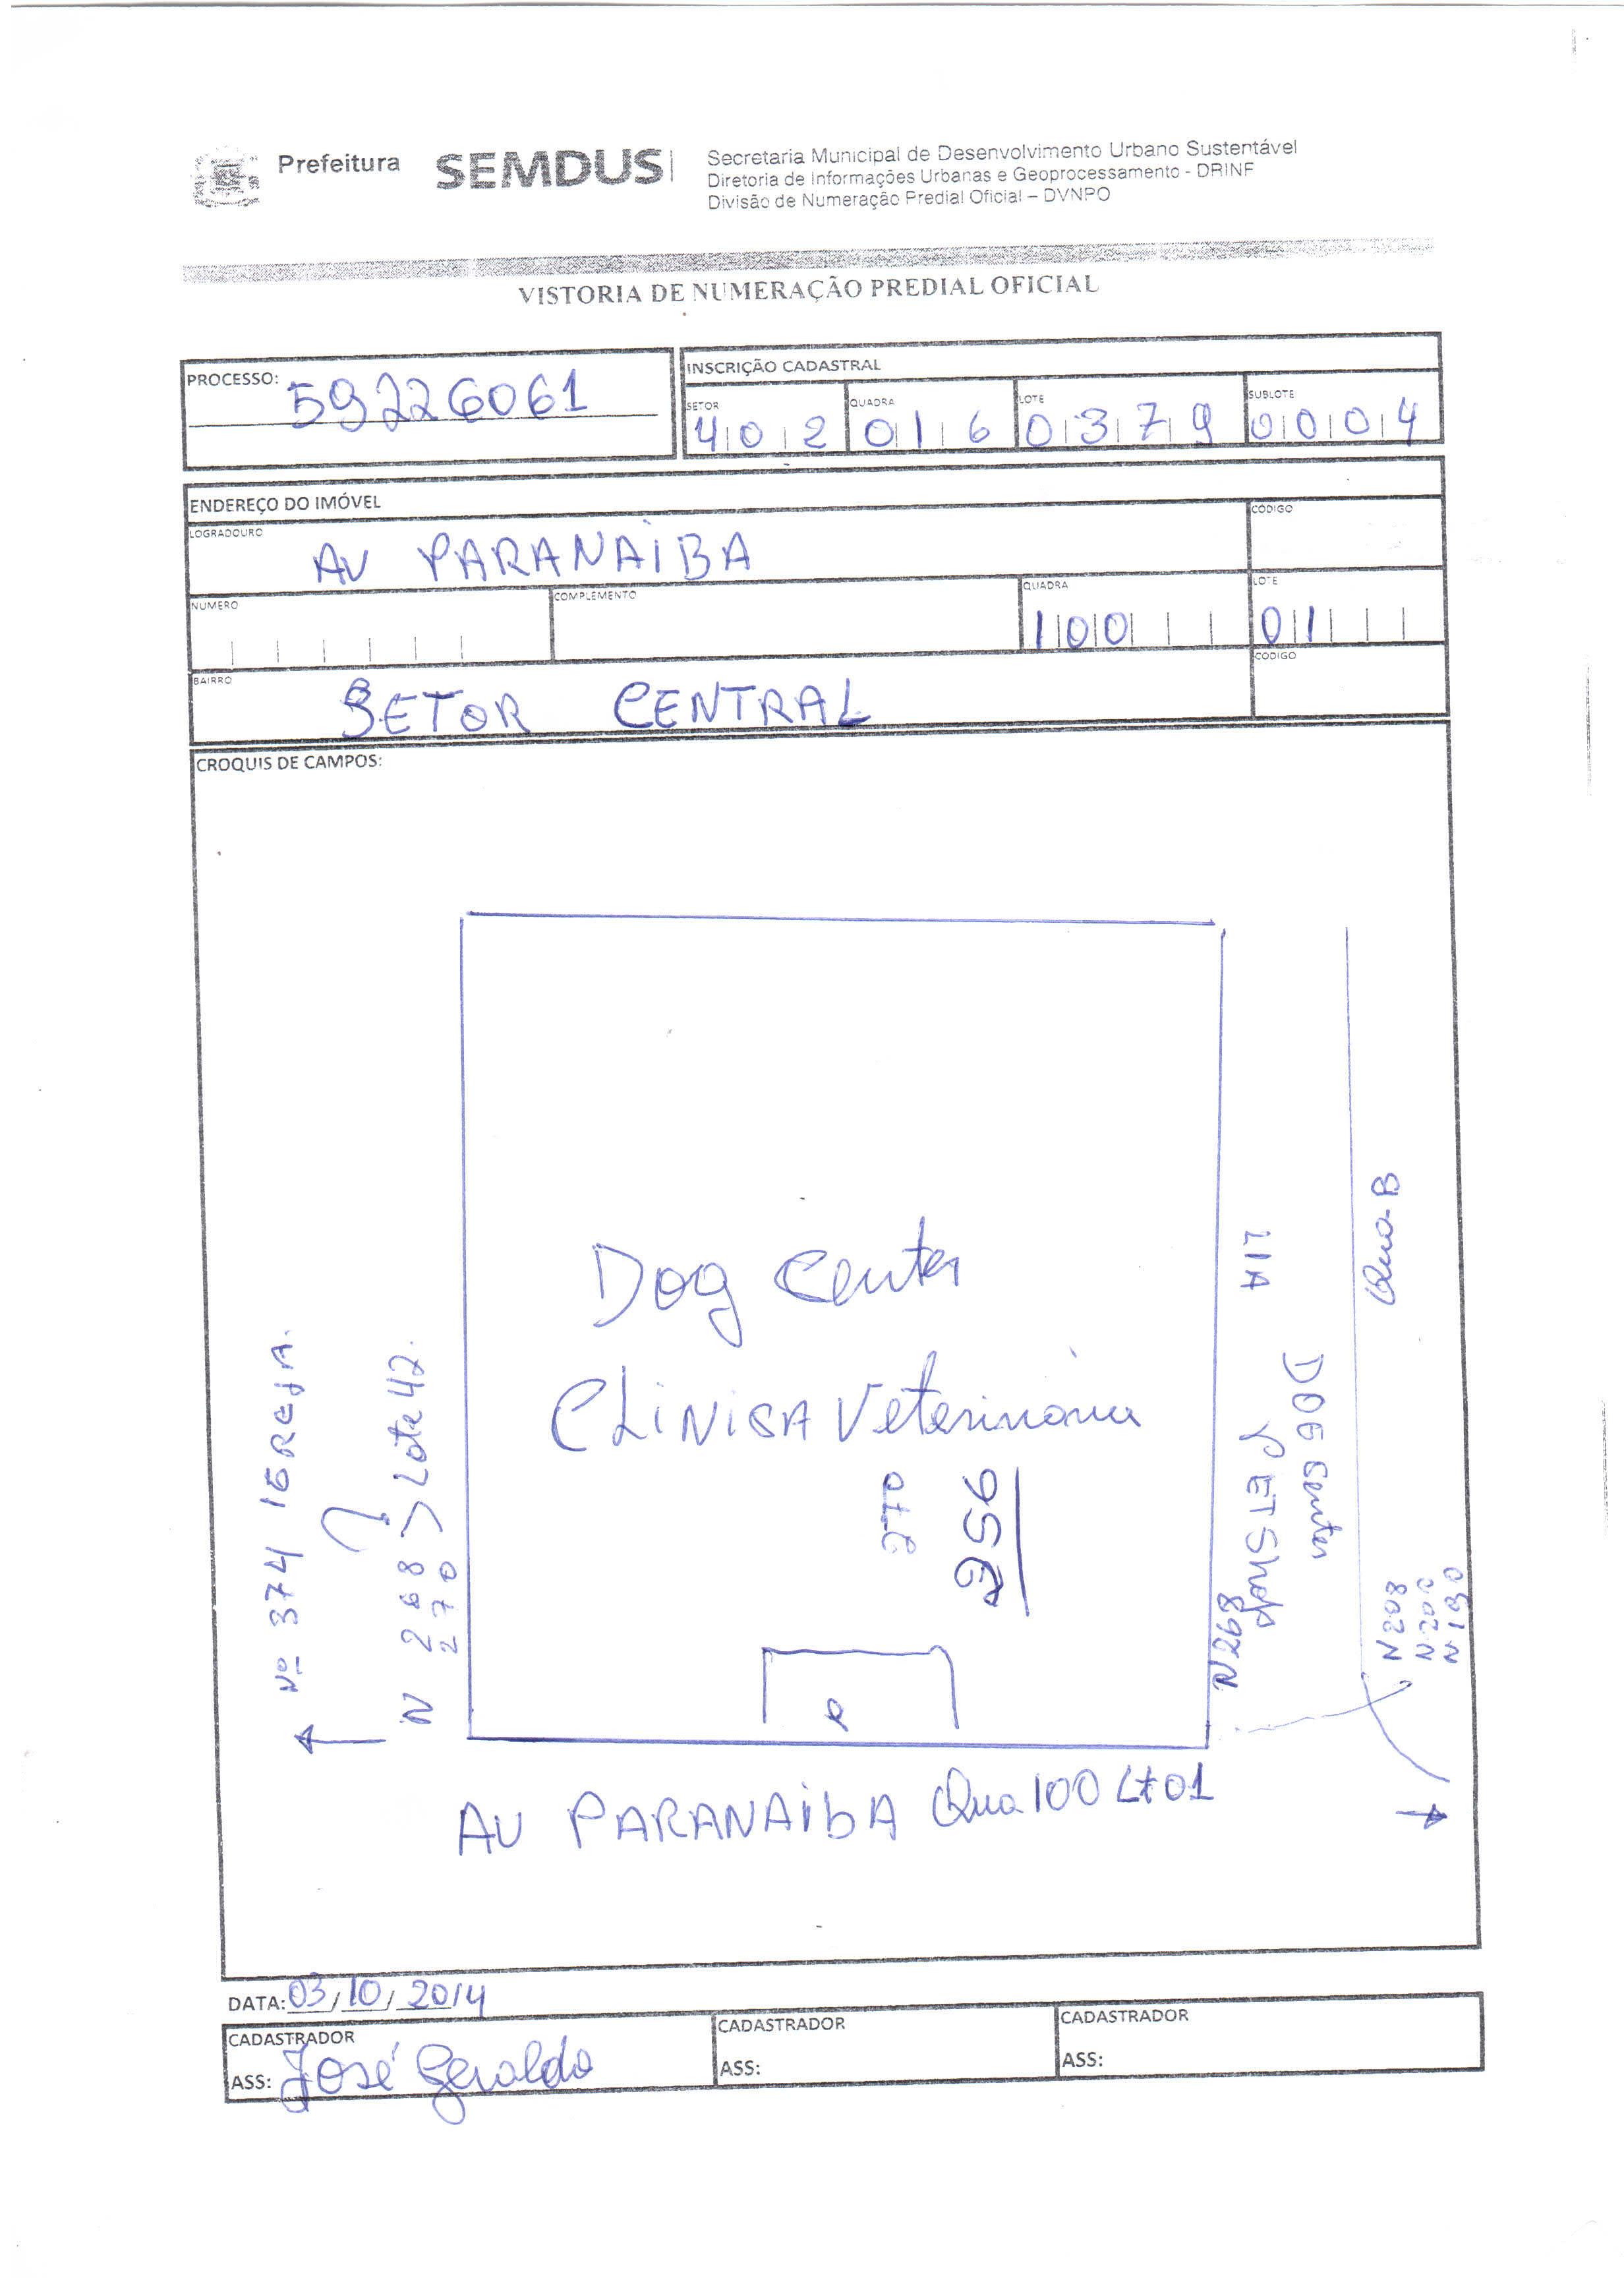 Prefeitura SEMDUS
Secretaria Municipal de Desenvolvimento Urbano Sustentável
Diretoria de Informações Urbanas e Geoprocessamento - DRINF
Divisão de Numeração Predial Oficial – DVNPO
VISTORIA DE NUMERAÇÃO PREDIAL OFICIAL
PROCESSO: 59226061
INSCRIÇÃO CADASTRAL
SETOR QUADRA LOTE SUBLOTE
402 016 0379 0004
ENDEREÇO DO IMÓVEL
LOGRADOURO CODIGO
AV PARANAIBA
NUMERO COMPLEMENTO QUADRA LOTE
100 01
BAIRRO CODIGO
SETOR CENTRAL
CROQUIS DE CAMPOS:
Nº 374 IGREJA.
N 268 > Lote 42.
270
Dog Center
CLINICA Veterinária
270
256
LIA
DOG Center
PETShop
N 268
Qua-B
N 208
N 200
N 190
AV PARANAIBA Qua 100 Lt 01
DATA: 03/10/2014
CADASTRADOR CADASTRADOR CADASTRADOR
ASS: José Geraldo ASS: ASS: